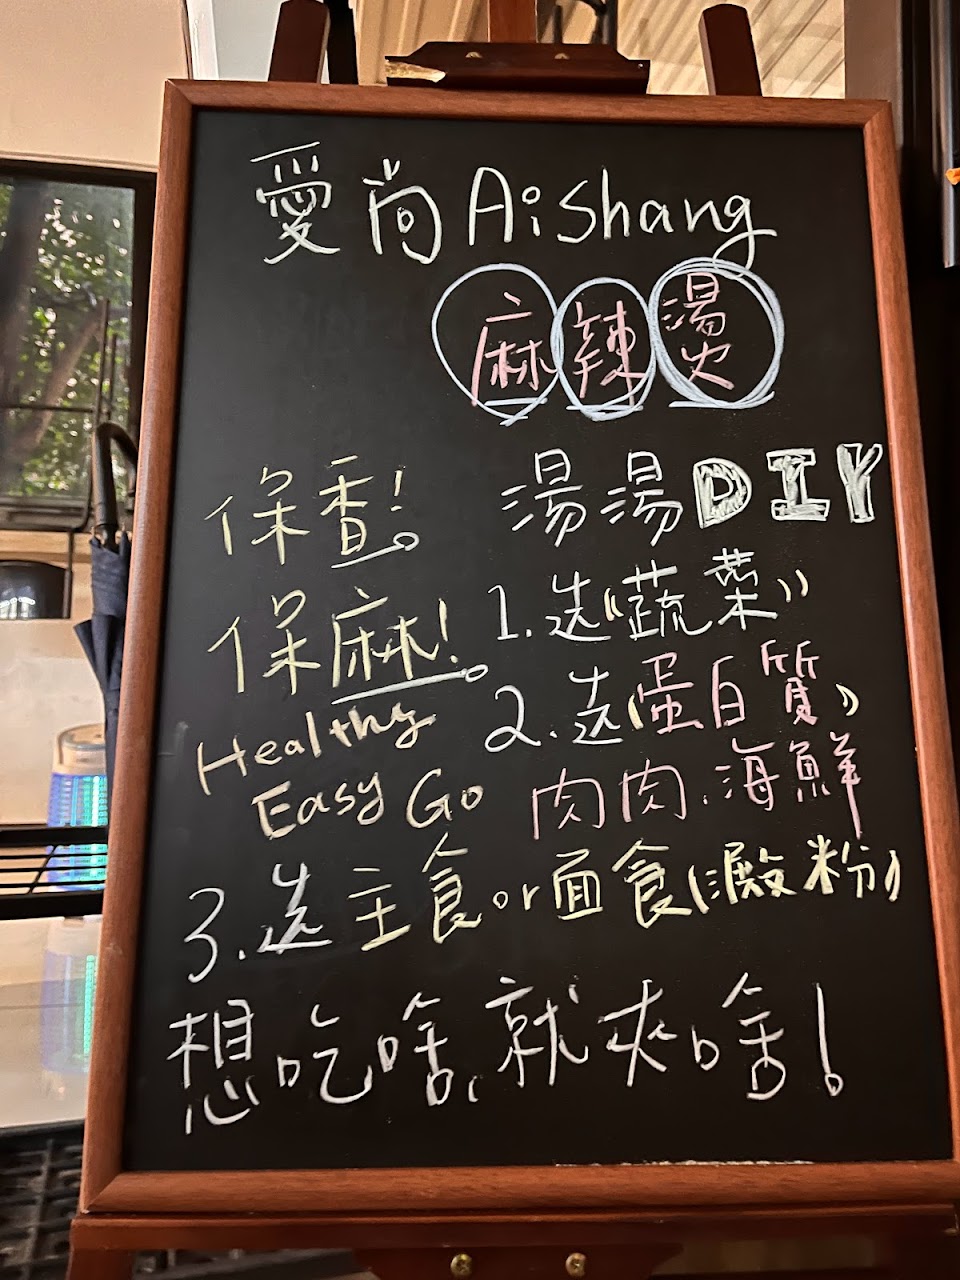 愛尚Aishang
麻辣燙
保香!
保麻!
Healthy
Easy Go
湯湯DIY
1.选"蔬菜"
2.选(蛋白質)
肉肉、海鮮
3.选主食or面食(澱粉)
想吃啥、就夾啥!